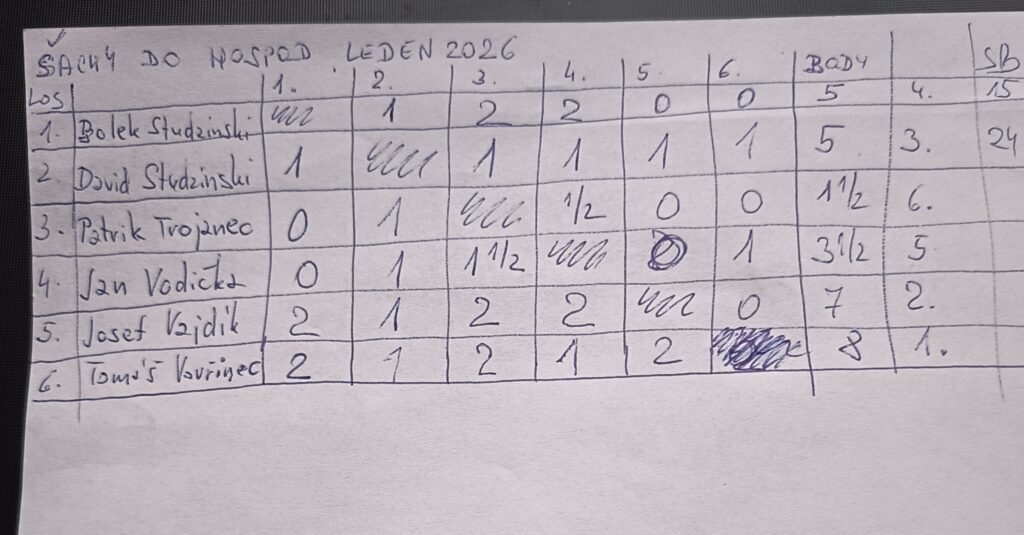 ŠACHY DO HOSPOD LEDEN 2026
LOS 1. 2. 3. 4. 5. 6. BODY SB
1. Bolek Studzinski 1 2 2 0 0 5 4. 15
2 David Studzinski 1 1 1 1 1 5 3. 24
3. Patrik Trojanec 0 1 1/2 0 0 1 1/2 6.
4. Jan Vodička 0 1 1 1/2 0 1 3 1/2 5
5. Josef Vajdík 2 1 2 2 0 7 2.
6. Tomáš Vavřinec 2 1 2 1 2 8 1.